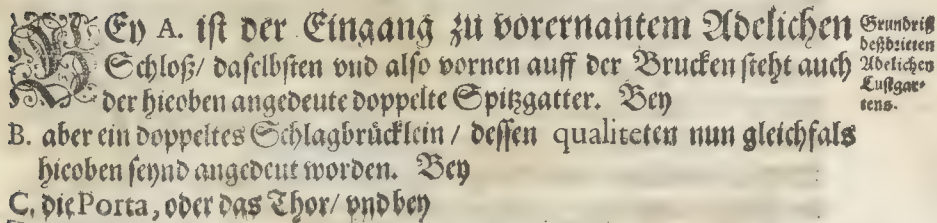 BEy A. ist der Eingang zu vorernantem Adelichen
Schloß/ daselbsten vnd also vornen auff der Brucken steht auch
der hieoben angedeute doppelte Spitzgatter. Bey
B. aber ein doppeltes Schlagbrücklein / dessen qualiteten nun gleichfals
hieoben seynd angedeut worden. Bey
C. die Porta, oder das Thor/ vnd bey
Grundriß
deß vierten
Adelichen
Lustgar-
tens.